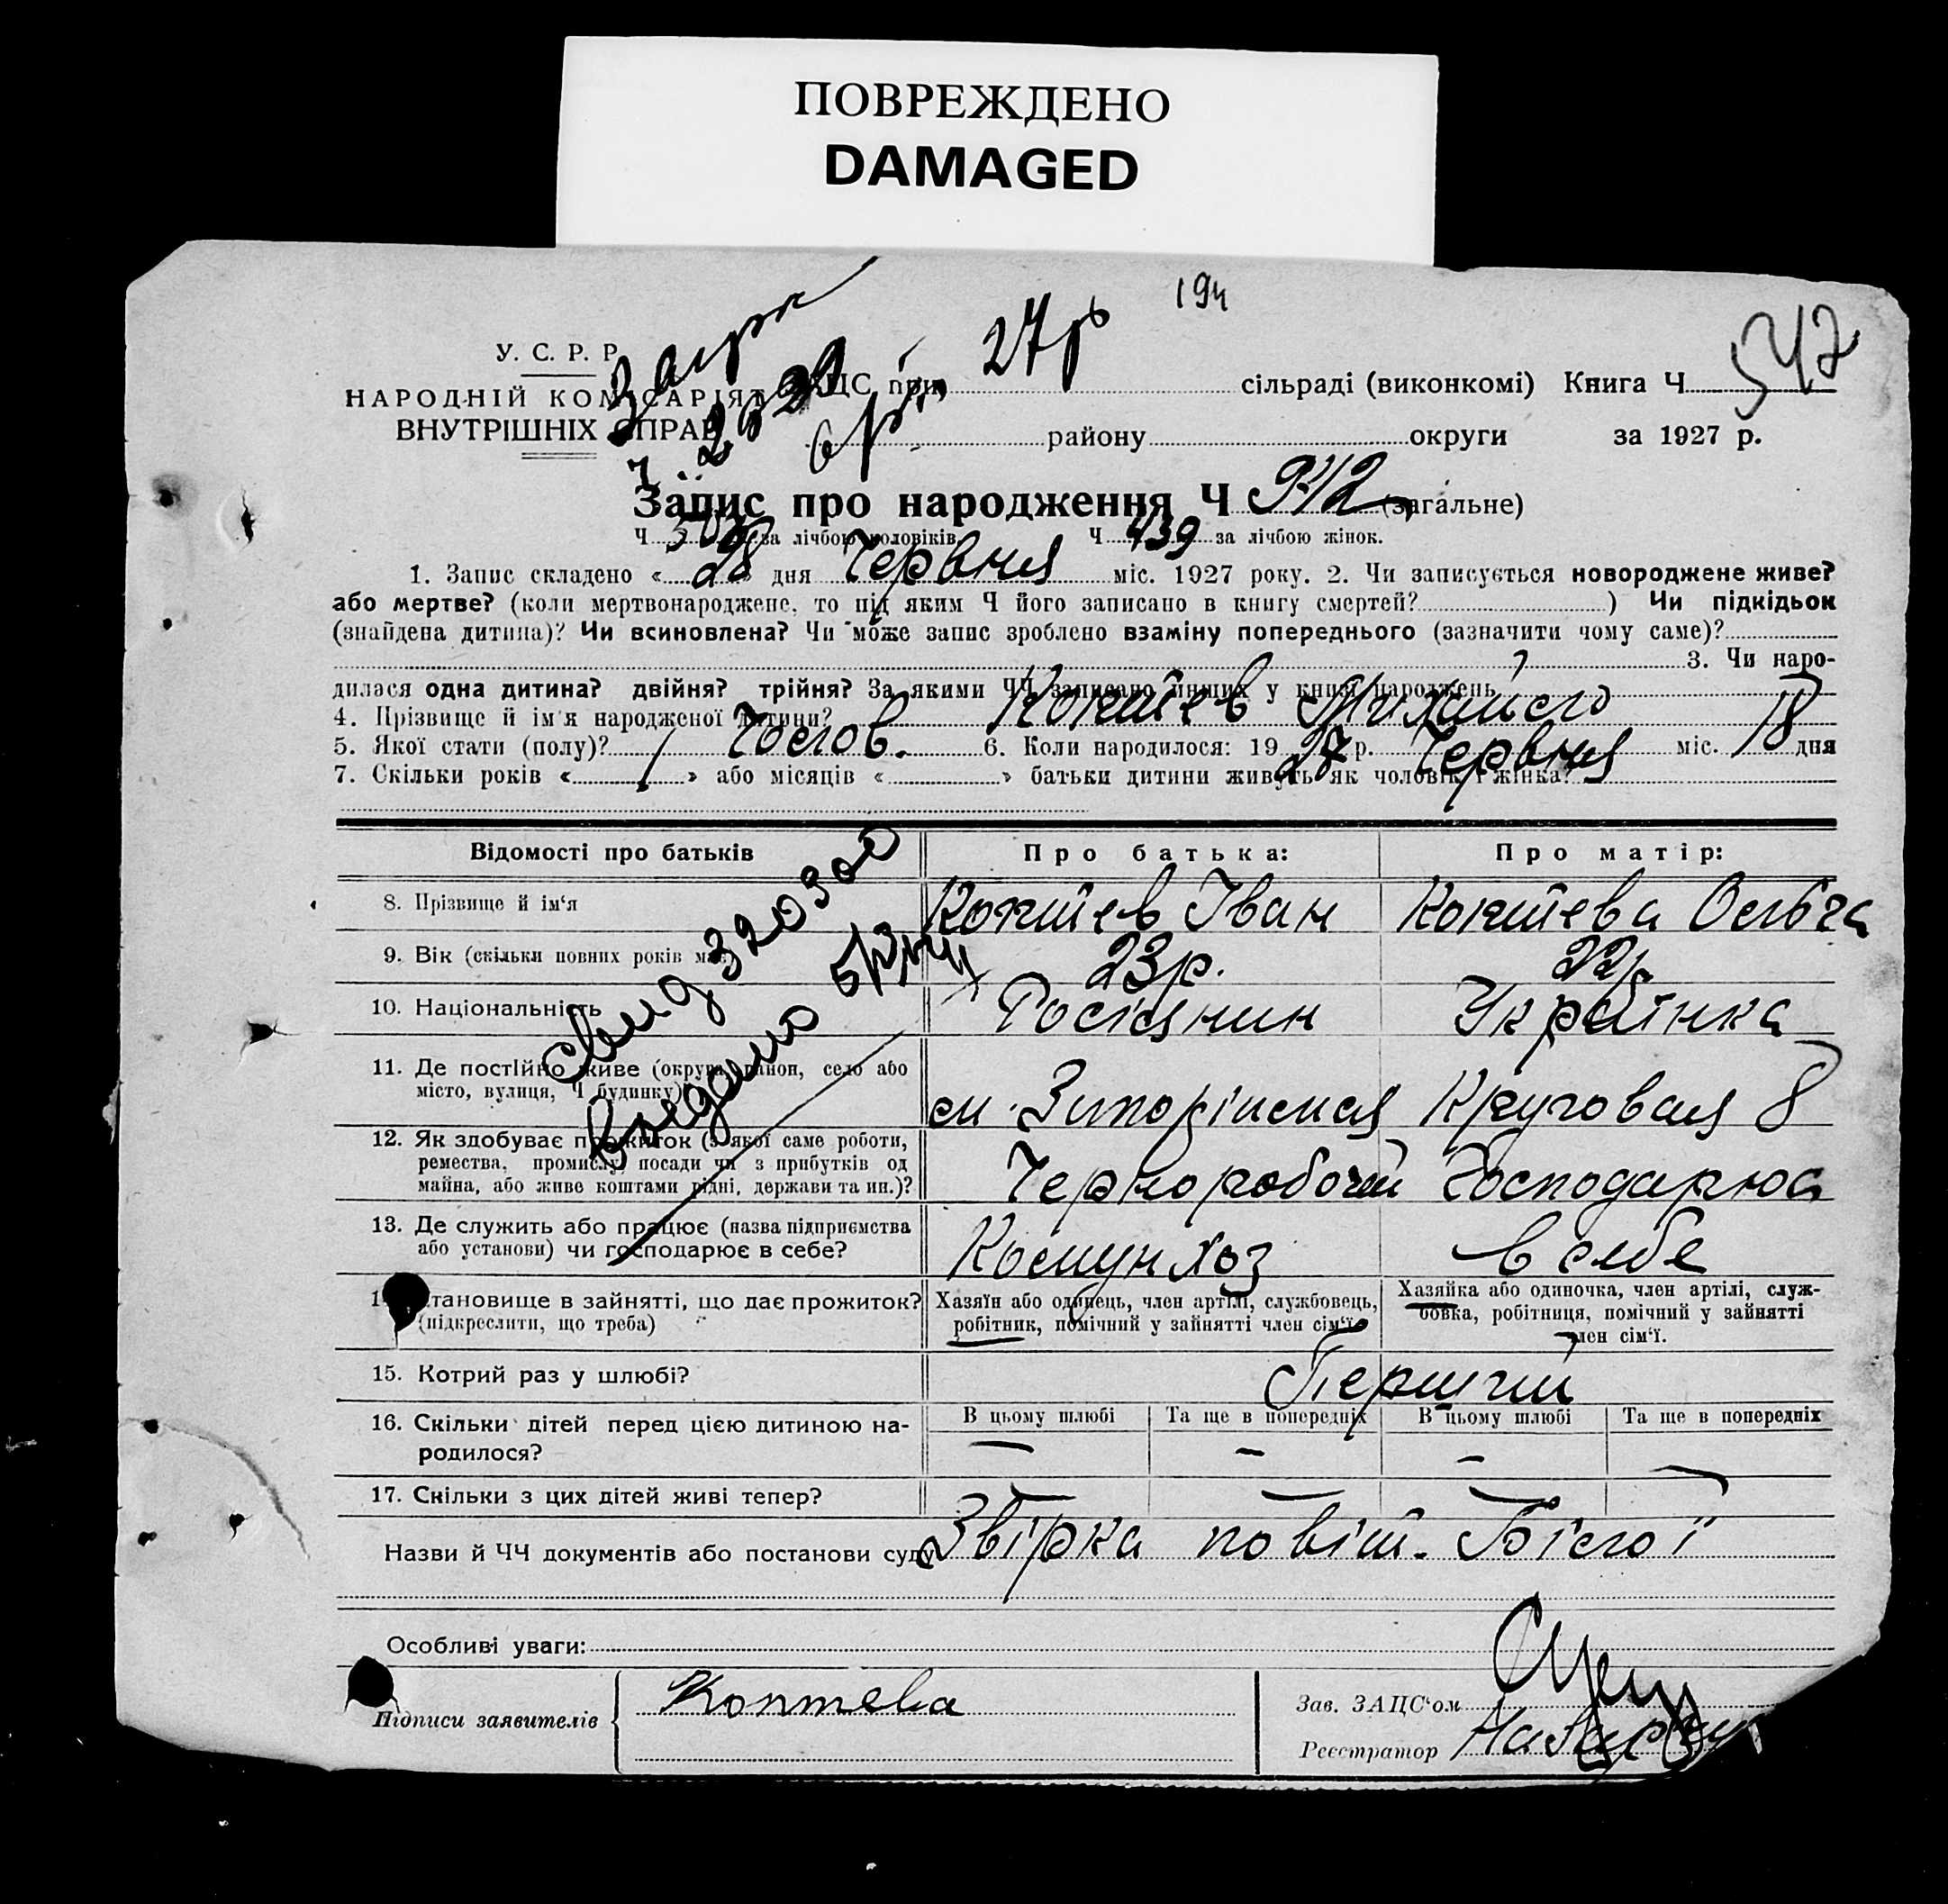 ПОВРЕЖДЕНО
DAMAGED
194
27р
547
У. С. Р. Р.
НАРОДНІЙ КОМІСАРІЯТ
ВНУТРІШНІХ СПРАВ
ЗАЦС при сільраді (виконкомі) Книга Ч
району округи за 1927 р.
Запис про народження Ч 942 (загальне)
Ч 503 за лічбою чоловіків Ч 439 за лічбою жінок.
1. Запис складено « 28 » дня Червня міс. 1927 року. 2. Чи записується новороджене живе?
або мертве? (коли мертвонароджене, то під яким Ч його записано в книгу смертей? ) Чи підкідьок
(знайдена дитина)? Чи всиновлена? Чи може запис зроблено взаміну попереднього (зазначити чому саме)?
3. Чи наро-
дилася одна дитина? двійня? трійня? За якими ЧЧ записано инших у книзі народжень
4. Прізвище й ім'я народженої дитини? Коптев Михайло
5. Якої стати (полу)? Чолов. 6. Коли народилося: 19 27 р. Червня міс. 18 дня
7. Скільки років « » або місяців « » батьки дитини живуть як чоловік і жінка?
Відомості про батьків Про батька: Про матір:
8. Прізвище й ім'я Коптев Іван Коптева Ольга
9. Вік (скільки повних років має) 23р. 22р.
10. Національність Росіянин Українка
11. Де постійно живе (округа, район, село або
місто, вулиця, Ч будинку) Круговая 8
12. Як здобуває прожиток (з якої саме роботи,
ремества, промислу, посади чи з прибутків од
майна, або живе коштами рідні, держави та ин.)? Чернорабочий Господарює
13. Де служить або працює (назва підприємства
або установи) чи господарює в себе? Комунхоз в себе
становище в зайнятті, що дає прожиток?
(підкреслити, що треба)
Хазяїн або одинець, член артілі, службовець,
робітник, помічний у зайнятті член сім'ї.
Хазяйка або одиночка, член артілі, служ-
бовка, робітниця, помічний у зайнятті
член сім'ї.
15. Котрий раз у шлюбі? Перший
16. Скільки дітей перед цією дитиною на-
родилося?
В цьому шлюбі Та ще в попередніх В цьому шлюбі Та ще в попередніх
— — — —
17. Скільки з цих дітей живі тепер? — — — —
Назви й ЧЧ документів або постанови суду Звірка
Особливі уваги:
Підписи заявителів Коптева
Зав. ЗАЦС'ом
Реєстратор
Видано